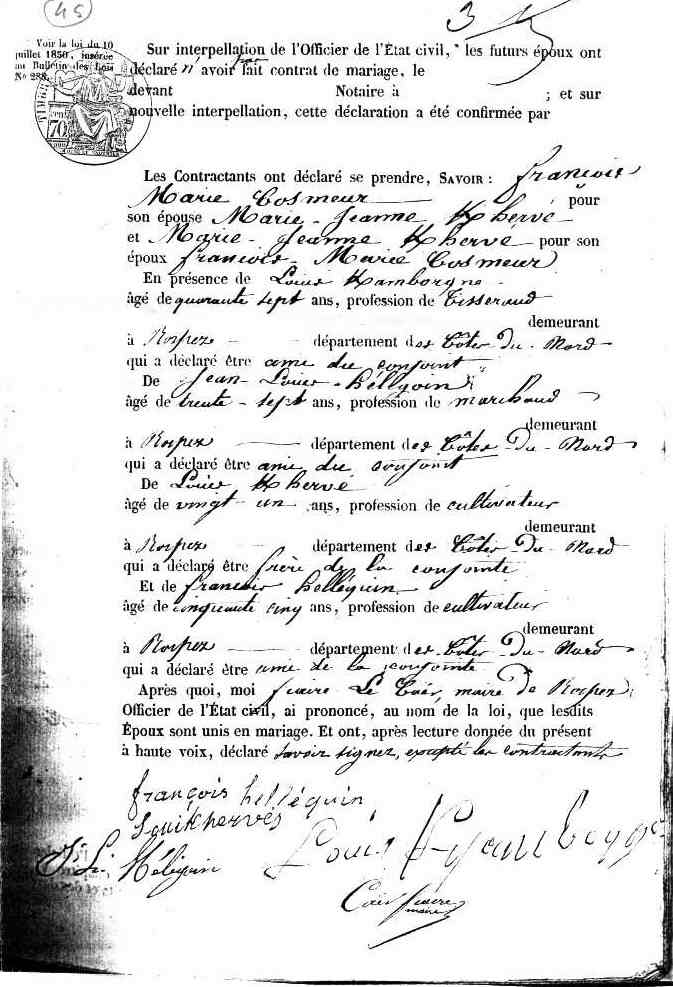 45
3
Voir la loi du 10
juillet 1850, insérée
au Bulletin des Lois
No 288.
TIMBRE
cen.
70
Sur interpellation de l'Officier de l'État civil, les futurs époux ont
déclaré n'avoir pas fait contrat de mariage, le
devant Notaire à ; et sur
nouvelle interpellation, cette déclaration a été confirmée par
Les Contractants ont déclaré se prendre, SAVOIR : françois
Marie Cosmeur pour
son épouse Marie-Jeanne Khervé
et Marie-Jeanne Khervé pour son
époux françois-Marie Cosmeur
En présence de Louis Kamborgne
âgé de quarante sept ans, profession de Tisserand
demeurant
à Rospez département des Côtes-Du-Nord
qui a déclaré être ami du conjoint
De Jean-Louis-héllgoin
âgé de trente-sept ans, profession de marchand
demeurant
à Rospez département des Côtes-Du-Nord
qui a déclaré être ami du conjoint
De Louis Khervé
âgé de vingt un ans, profession de cultivateur
demeurant
à Rospez département des Côtes-Du-Nord
qui a déclaré être frère de la conjointe
Et de françois helléguin
âgé de cinquante cinq ans, profession de cultivateur
demeurant
à Rospez département des Côtes-Du-Nord
qui a déclaré être ami de la conjointe
Après quoi, moi Le Caër, maire de Rospez
Officier de l'État civil, ai prononcé, au nom de la loi, que lesdits
Époux sont unis en mariage. Et ont, après lecture donnée du présent
à haute voix, déclaré savoir signer, excepté les contractants
françois helléguin
Louis Khervé
J. L. Héléguin
Louis
Caër
maire